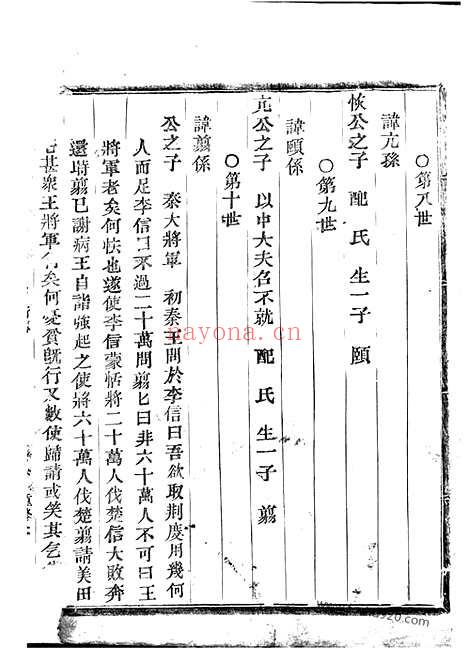 ○第八世
諱元孫
恢公之子 配 氏 生一子 頤
○第九世
諱頤係
元公之子 以中大夫名不就 配 氏 生一子 翦
○第十世
諱翦係
公之子 秦大將軍 初秦王問於李信曰吾欲取荆度用幾何
人而足李信曰不過二十萬問翦匕曰非六十萬人不可曰王
將軍老矣何怯也遂使李信蒙恬將二十萬人伐楚信大敗奔
還時翦已謝病王自詣強起之使將六十萬人伐楚翦請美田
甚衆王將軍 矣何憂貧旣行又數使歸請或笑其乞
nayona.cn